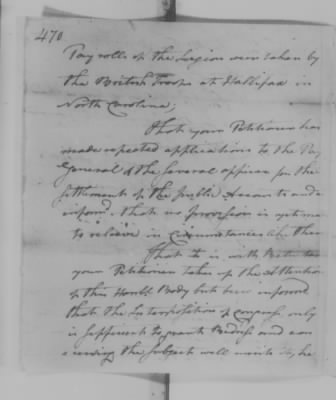 470
Pay rolls of the Legion were taken by
the British Troops at Hallifax in
North Carolina;
That your Petitioner has
made repeated applications to the Pay
General & the Several offices for the
settlement of the public Accounts and
inform'd that no Provision is
to relieve in Circumstances like these
That it is with
your Petitioner takes up the Attention
of this Honble Body but been informd
that the Interposition of Congress only
is sufficient to grant Redress and con
ceiving the Subject well merits it, he